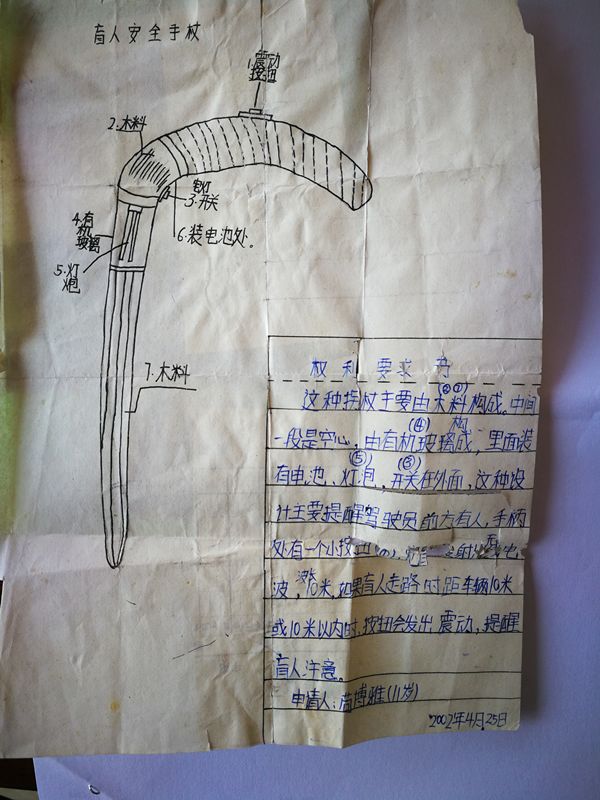 盲人安全手杖
1.震动
按钮
2.木料
电灯
3.开关
4.有
机
玻璃
6.装电池处。
5.灯
炮
7.木料
权利要求书
这种拐杖主要由木料(②⑦)构成。中间
一段是空心,由有机玻璃(④)构成,里面装
有电池、灯泡(⑤),开关(③)在外面,这种设
计主要提醒驾驶员前方有人,手柄
处有一个小按
波,10米,如果盲人走路时距车辆10米
或10米以内时,按钮会发出震动,提醒
盲人注意。
申请人:博雅(11岁)
2002年4月25日